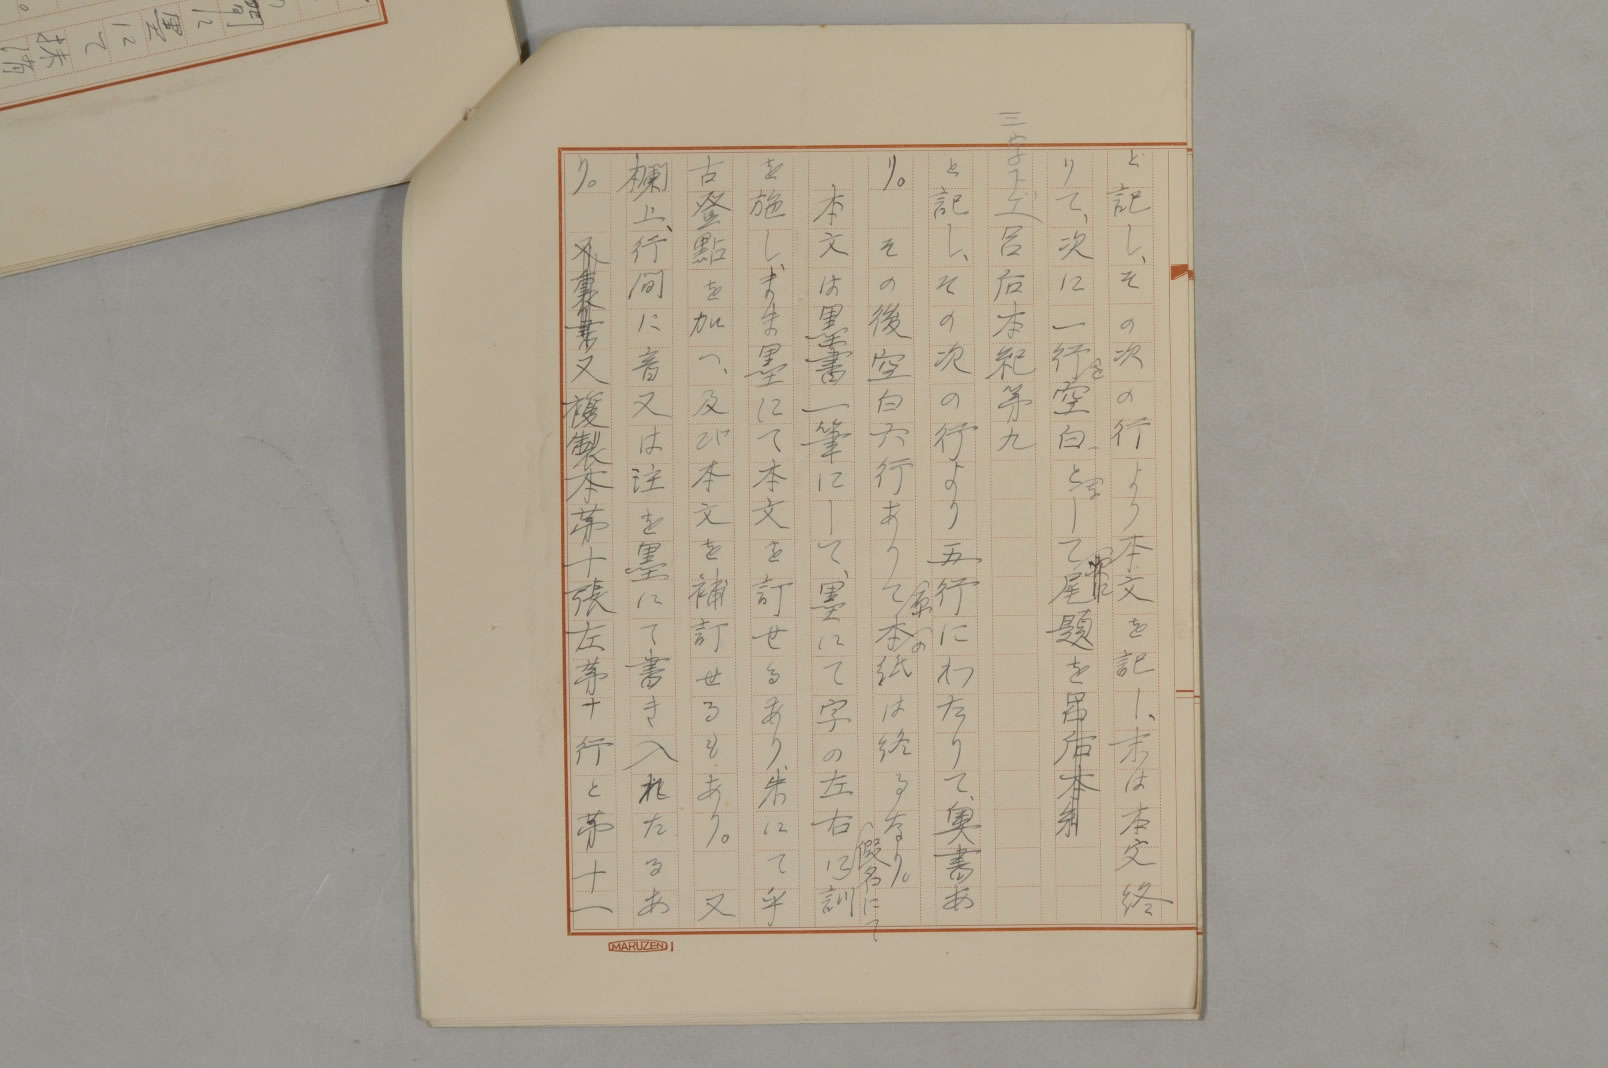 と記し、その次の行より本文を記し、末は本文終
りて、次に一行を空白として尾題を呂后本紀
三字下ゲ
呂后本紀第九
と記し、その次の行より五行にわたりて、奥書あ
り。その後空白六行ありて本紙は終るなり。
本文は墨書一筆にして、墨にて字の左右に訓
假名にて
を施し、また墨にて本文を訂せるあり、朱にて乎
古登點を加へ、及び本文を補訂せるもあり。又
欄上、行間に音又は注を墨にて書き入れたるあ
り。又裏書又複製本第十張左第十行と第十一
MARUZEN
間に
墨にて